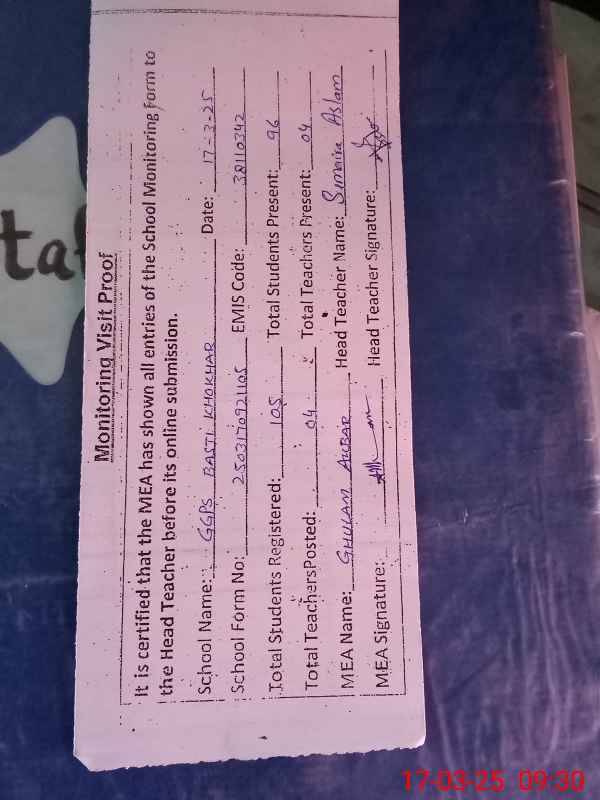 Monitoring Visit Proof
It is certified that the MEA has shown all entries of the School Monitoring form to
the Head Teacher before its online submission.
School Name: GGPS BASTI KHOKHAR Date: 17-3-25
School Form No: 2503170921105 EMIS Code: 32110342
Total Students Registered: 105 Total Students Present: 96
Total TeachersPosted: 04 Total Teachers Present: 04
MEA Name: GHULAM AKBAR Head Teacher Name: Sumaira Aslam
MEA Signature: Head Teacher Signature:
17-03-25 09:30